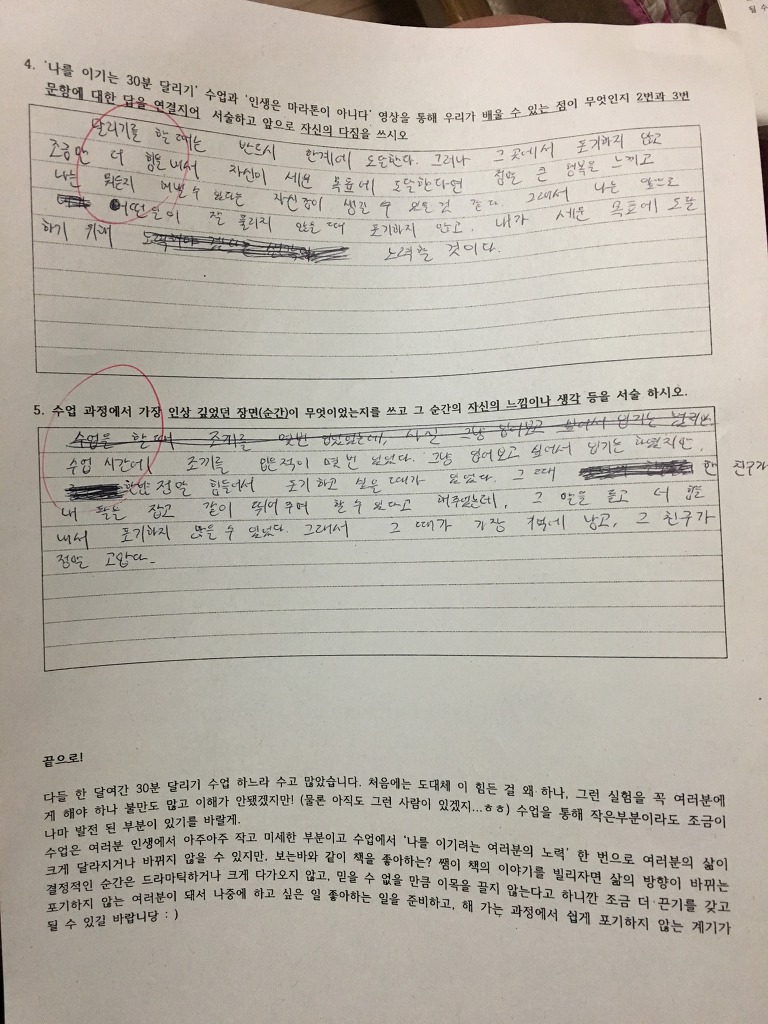 될 수
4. '나를 이기는 30분 달리기' 수업과 '인생은 마라톤이 아니다' 영상을 통해 우리가 배울 수 있는 점이 무엇인지 2번과 3번
문항에 대한 답을 연결지어 서술하고 앞으로 자신의 다짐을 쓰시오
달리기를 할 때는 반드시 한계에 도달한다. 그러나 그 곳에서 포기하지 않고
조금만 더 힘을 내서 자신이 세운 목표에 도달한다면 정말 큰 행복을 느끼고
나는 뭐든지 해낼 수 있다는 자신감이 생길 수 있을 것 같다. 그래서 나는 앞으로
어떤 일이 잘 풀리지 않을 때 포기하지 않고, 내가 세운 목표에 도달
하기 위해 노력할 것이다.
5. 수업 과정에서 가장 인상 깊었던 장면(순간)이 무엇이었는지를 쓰고 그 순간의 자신의 느낌이나 생각 등을 서술 하시오.
수업을 할 때 조끼를 몇번 입었었는데, 사실 그냥 입어보고 싶어서 입기는
수업 시간에 조끼를 입은적이 몇 번 있었다. 그냥 입어보고 싶어서 입기는 하였지만,
정말 힘들어서 포기하고 싶을 때가 있었다. 그 때 한 친구가
내 팔을 잡고 같이 뛰어주며 할 수 있다고 해주었는데, 그 말을 듣고 더 힘을
내서 포기하지 않을 수 있었다. 그래서 그 때가 가장 기억에 남고, 그 친구가
정말 고맙다.
끝으로!
다들 한 달여간 30분 달리기 수업 하느라 수고 많았습니다. 처음에는 도대체 이 힘든 걸 왜 하나, 그런 실험을 꼭 여러분에
게 해야 하나 불만도 많고 이해가 안됐겠지만! (물론 아직도 그런 사람이 있겠지...ㅎㅎ) 수업을 통해 작은부분이라도 조금이
나마 발전 된 부분이 있기를 바랄게.
수업은 여러분 인생에서 아주아주 작고 미세한 부분이고 수업에서 '나를 이기려는 여러분의 노력' 한 번으로 여러분의 삶이
크게 달라지거나 바뀌지 않을 수 있지만, 보는바와 같이 책을 좋아하는? 쌤이 책의 이야기를 빌리자면 삶의 방향이 바뀌는
결정적인 순간은 드라마틱하거나 크게 다가오지 않고, 믿을 수 없을 만큼 이목을 끌지 않는다고 하니깐 조금 더 끈기를 갖고
포기하지 않는 여러분이 돼서 나중에 하고 싶은 일 좋아하는 일을 준비하고, 해 가는 과정에서 쉽게 포기하지 않는 계기가
될 수 있길 바랍니당 : )